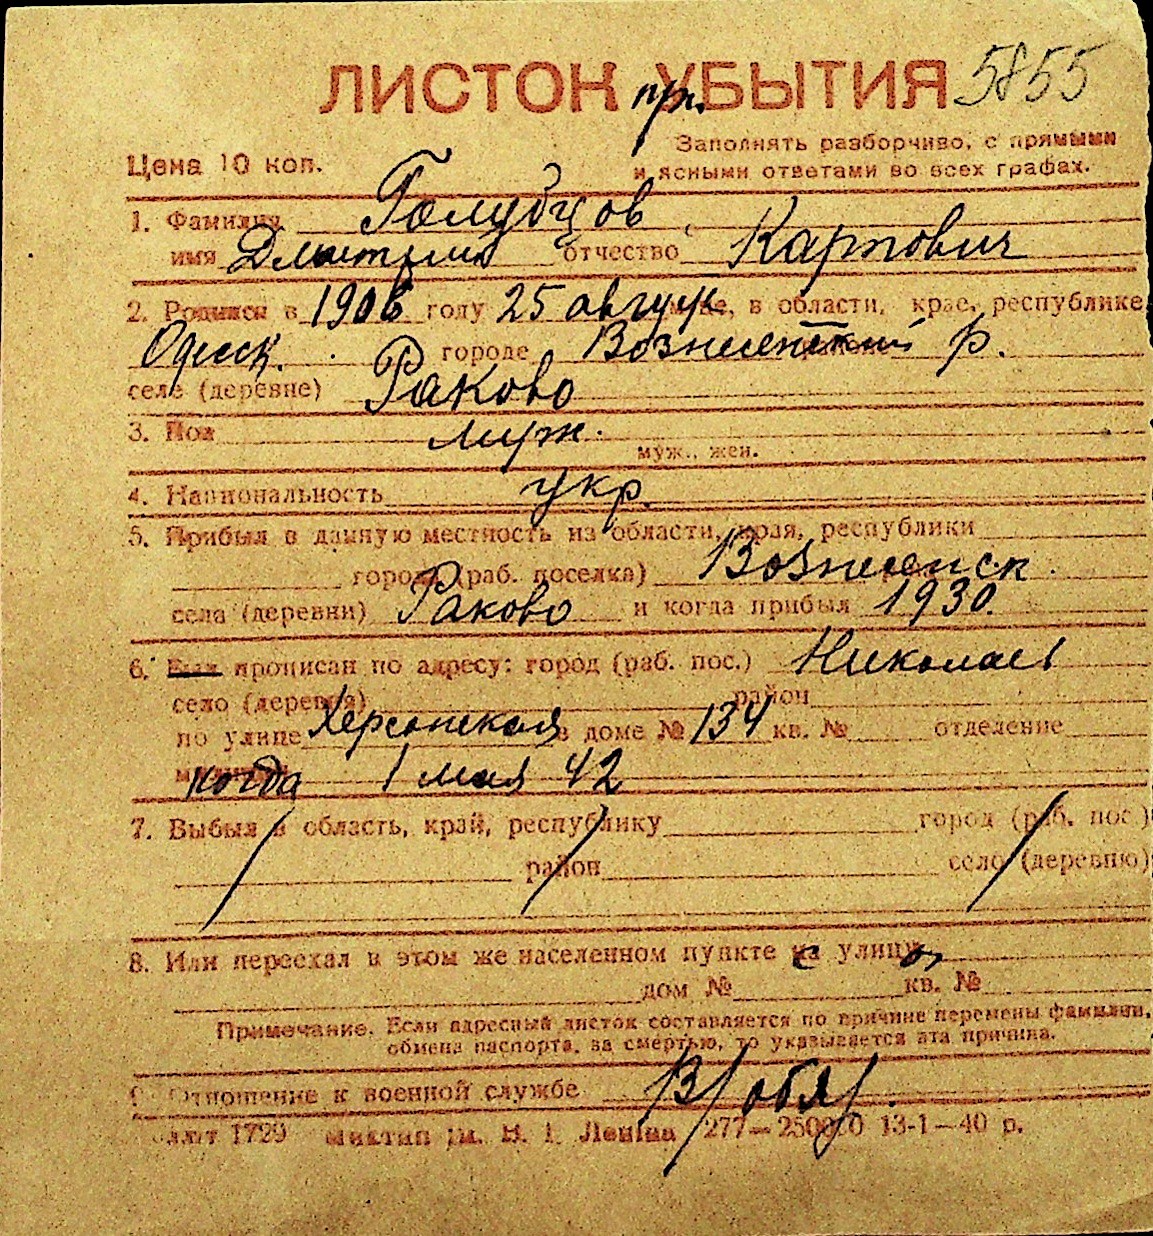 ЛИСТОК пр. УБЫТИЯ 5855
Цена 10 коп.
Заполнять разборчиво, с прямыми
и ясными ответами во всех графах.
1. Фамилия Голубцов
имя Дмитрий отчество Карпович
2. Родился в 1906 году 25 август м-це, в области, крае, республике
Одесск. городе Вознесенский р.
селе (деревне) Раково
3. Пол муж.
муж., жен.
4. Национальность укр.
5. Прибыл в данную местность из области, края, республики
города (раб. поселка) Вознесенск.
села (деревни) Раково и когда прибыл 1930.
6. Был прописан по адресу: город (раб. пос.) Николаев
село (деревня) район
по улице Херсонская в доме № 134 кв. № отделение
когда 1 мая 42
7. Выбыл в область, край, республику город (раб. пос.)
район село (деревню)
8. Или переехал в этом же населенном пункте с улицы
дом № кв. №
Примечание. Если адресный листок составляется по причине перемены фамилии,
обмена паспорта, за смертью, то указывается эта причина.
9. Отношение к военной службе В/обяз.
1729 им. В. І. Леніна 277—250000 13-1—40 р.